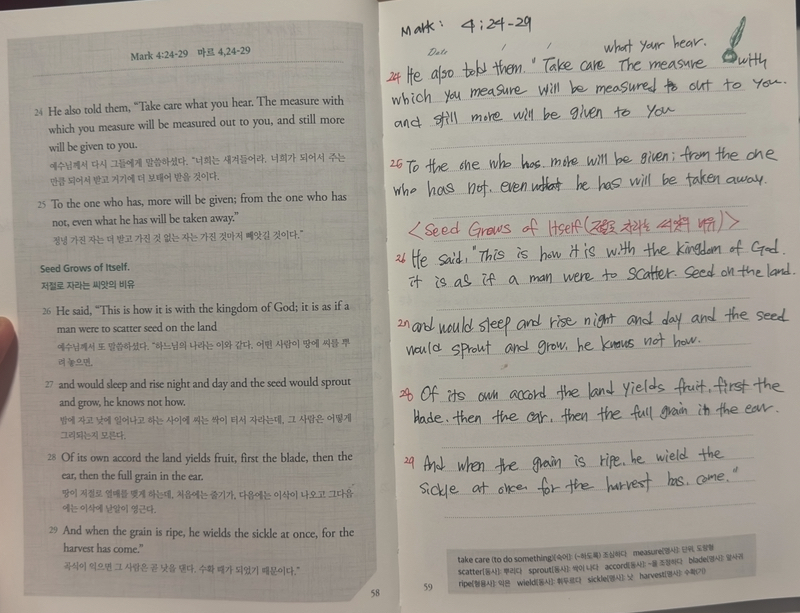 Mark 4:24-29 마르 4,24-29
24 He also told them, “Take care what you hear. The measure with
which you measure will be measured out to you, and still more
will be given to you.
예수님께서 다시 그들에게 말씀하셨다. “너희는 새겨들어라. 너희가 되어서 주는
만큼 되어서 받고 거기에 더 보태어 받을 것이다.
25 To the one who has, more will be given; from the one who has
not, even what he has will be taken away.”
정녕 가진 자는 더 받고 가진 것 없는 자는 가진 것마저 빼앗길 것이다.”
Seed Grows of Itself.
저절로 자라는 씨앗의 비유
26 He said, “This is how it is with the kingdom of God; it is as if a
man were to scatter seed on the land
예수님께서 또 말씀하셨다. “하느님의 나라는 이와 같다. 어떤 사람이 땅에 씨를 뿌
려 놓으면,
27 and would sleep and rise night and day and the seed would sprout
and grow, he knows not how.
밤에 자고 낮에 일어나고 하는 사이에 씨는 싹이 터서 자라는데, 그 사람은 어떻게
그리되는지 모른다.
28 Of its own accord the land yields fruit, first the blade, then the
ear, then the full grain in the ear.
땅이 저절로 열매를 맺게 하는데, 처음에는 줄기가, 다음에는 이삭이 나오고 그다음
에는 이삭에 낟알이 영근다.
29 And when the grain is ripe, he wields the sickle at once, for the
harvest has come.”
곡식이 익으면 그 사람은 곧 낫을 댄다. 수확 때가 되었기 때문이다.”
58
Mark: 4:24-29
Date / /
what your hear.
24 He also told them. "Take care The measure with
which you measure will be measured to out to you.
and still more will be given to you
25 To the one who has. more will be given; from the one
who has not, even what he has will be taken away.
<Seed Grows of Itself (저절로 자라는 씨앗의 비유)>
26 He said, "This is how it is with the kingdom of God.
it is as if a man were to scatter. seed on the land.
27 and would sleep and rise night and day and the seed
would sprout and grow. he knows not how.
28 Of its own accord the land yields fruit, first the
blade, then the ear, then the full grain in the ear.
29 And when the grain is ripe. he wield the
sickle at once. for the harvest has. come."
take care (to do something)(숙어): (~하도록) 조심하다 measure(명사): 단위, 도량형
scatter(동사): 뿌리다 sprout(동사): 싹이 나다 accord(동사): ~을 조정하다 blade(명사): 잎사귀
ripe(형용사): 익은 wield(동사): 휘두르다 sickle(명사): 낫 harvest(명사): 수확(기)
59